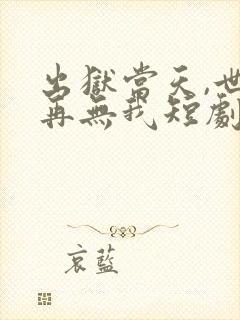 出獄當天,世
再無我短劇
哀藍